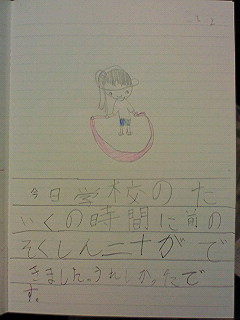 今日学校のた
いくの時間に前の
そくしん二十がで
きました。うれしかったで
す。